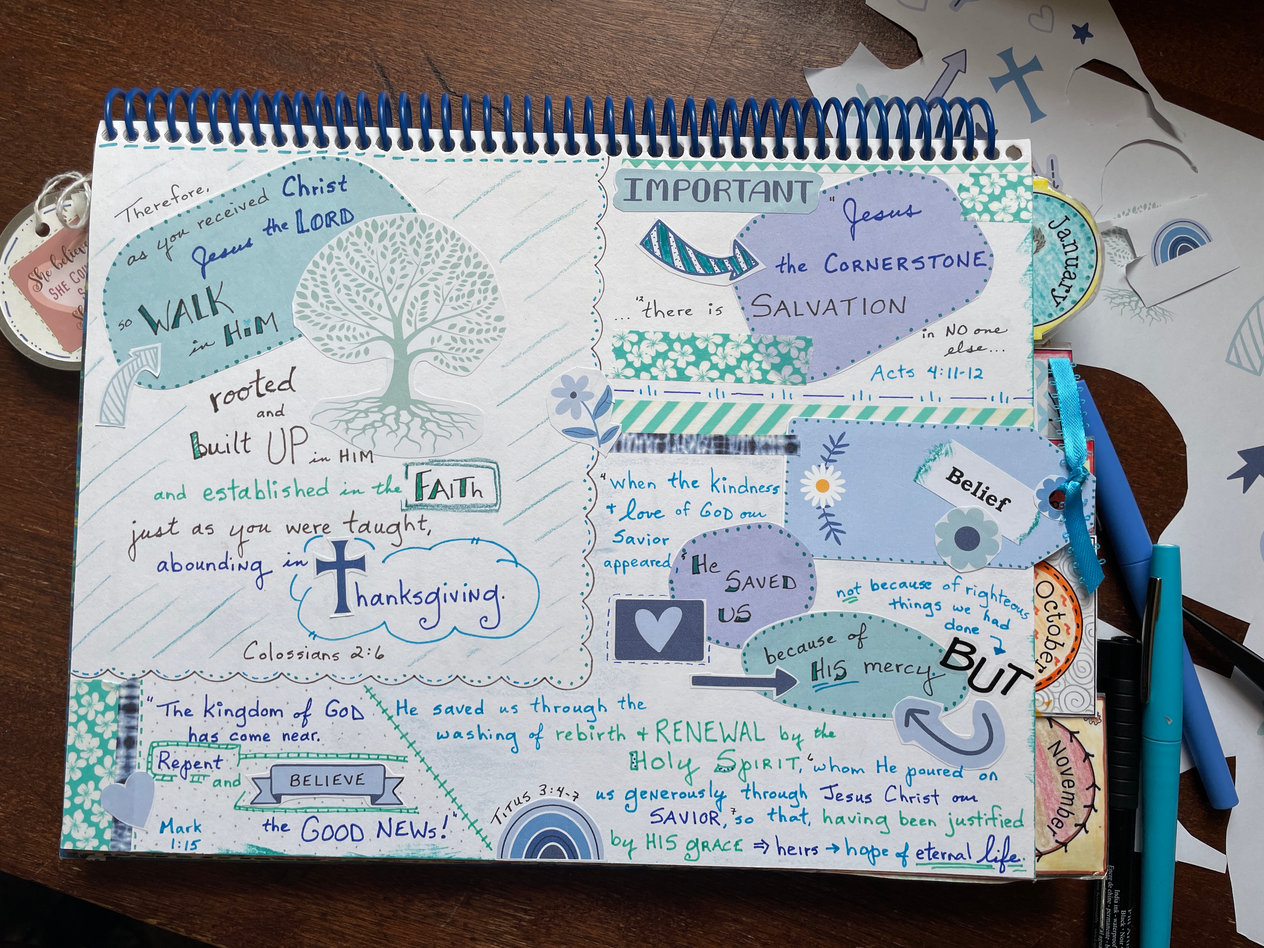 Therefore,
as you received Christ
Jesus the LORD
so WALK
in HiM
rooted
and
built UP in HIM
and established in the FAITh
just as you were taught,
abounding in
Thanksgiving.
Colossians 2:6
IMPORTANT
"Jesus
the CORNERSTONE
...¹²there is SALVATION
in NO one
else...
Acts 4:11-12
"⁴when the kindness
+ love of GOD our
Savior
appeared
Belief
⁵He
SAVED
US
not because of righteous
things we had
done
BUT
because of
HIS mercy.
He saved us through the
washing of rebirth + RENEWAL by the
Holy SpiRiT, ⁶whom He poured on
us generously through Jesus Christ our
SAVIOR, ⁷so that, having been justified
by HIS GRACE ⇒ heirs → hope of eternal life.
TiTus 3:4-7
"The kingdom of GOD
has come near.
Repent
and
BELIEVE
the GOOD NEWs!"
Mark
1:15
She believed
SHE CO
January
October
November
India ink - waterproof